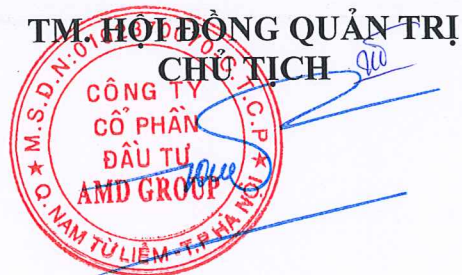 TM. HỘI ĐỒNG QUẢN TRỊ
CHỦ TỊCH
CÔNG TY
CỔ PHẦN
ĐẦU TƯ
AMD GROUP
Q. NAM TỪ LIÊM - T.P HÀ NỘI